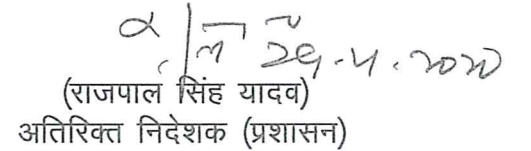 29.4.2020
(राजपाल सिंह यादव)
अतिरिक्त निदेशक (प्रशासन)